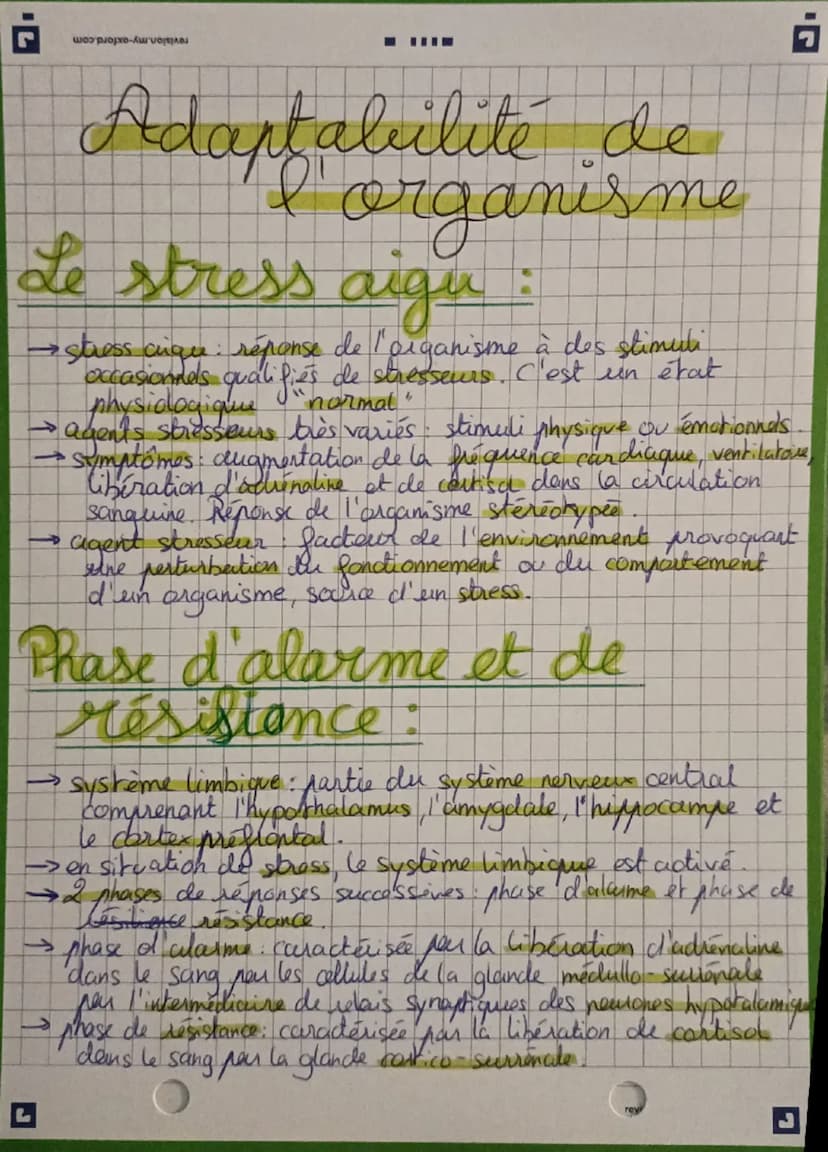 revision.my-oxford.com
Adaptabilité de
l'organisme
Le stress aigu :
→ stress aigu : réponse de l'organisme à des stimuli
occasionnels qualifiés de stresseurs. C'est un état
physiologique "normal"
→ agents stresseurs très variés : stimuli physique ou émotionnels.
→ symptômes : augmentation de la fréquence cardiaque, ventilatoire,
libération d'adrénaline et de cortisol dans la circulation
sanguine. Réponse de l'organisme stéréotypée.
→ agent stresseur : facteur de l'environnement provoquant
une perturbation du fonctionnement ou du comportement
d'un organisme, source d'un stress.
Phase d'alarme et de
résistance :
→ système limbique : partie du système nerveux central
comprenant l'hypothalamus, l'amygdale, l'hippocampe et
le cortex préfrontal.
→ en situation de stress, le système limbique est activé.
→ 2 phases de réponses successives : phase d'alarme et phase de
résilience résistance.
→ phase d'alarme : caractérisée par la libération d'adrénaline
dans le sang par les cellules de la glande médullo-surrénale
par l'intermédiaire de relais synaptiques des neurones hypotalamiqu
→ phase de résistance : caractérisée par la libération de cortisol
dans le sang par la glande cortico-surrénale.
rev